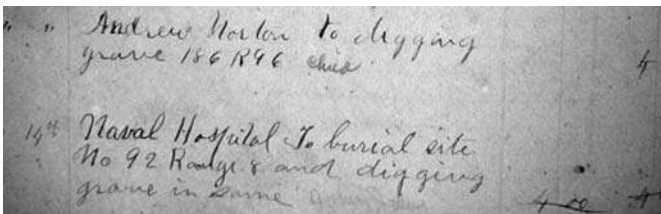 " " Andrew Norton to digging
grave 186 R96 child 4
14th Naval Hospital To burial site
No 92 Range 8 and digging
grave in same 4 00 4